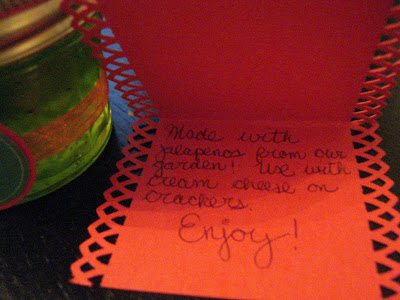 Made with
jalapenos from our
garden! Use with
cream cheese on
crackers.
Enjoy!